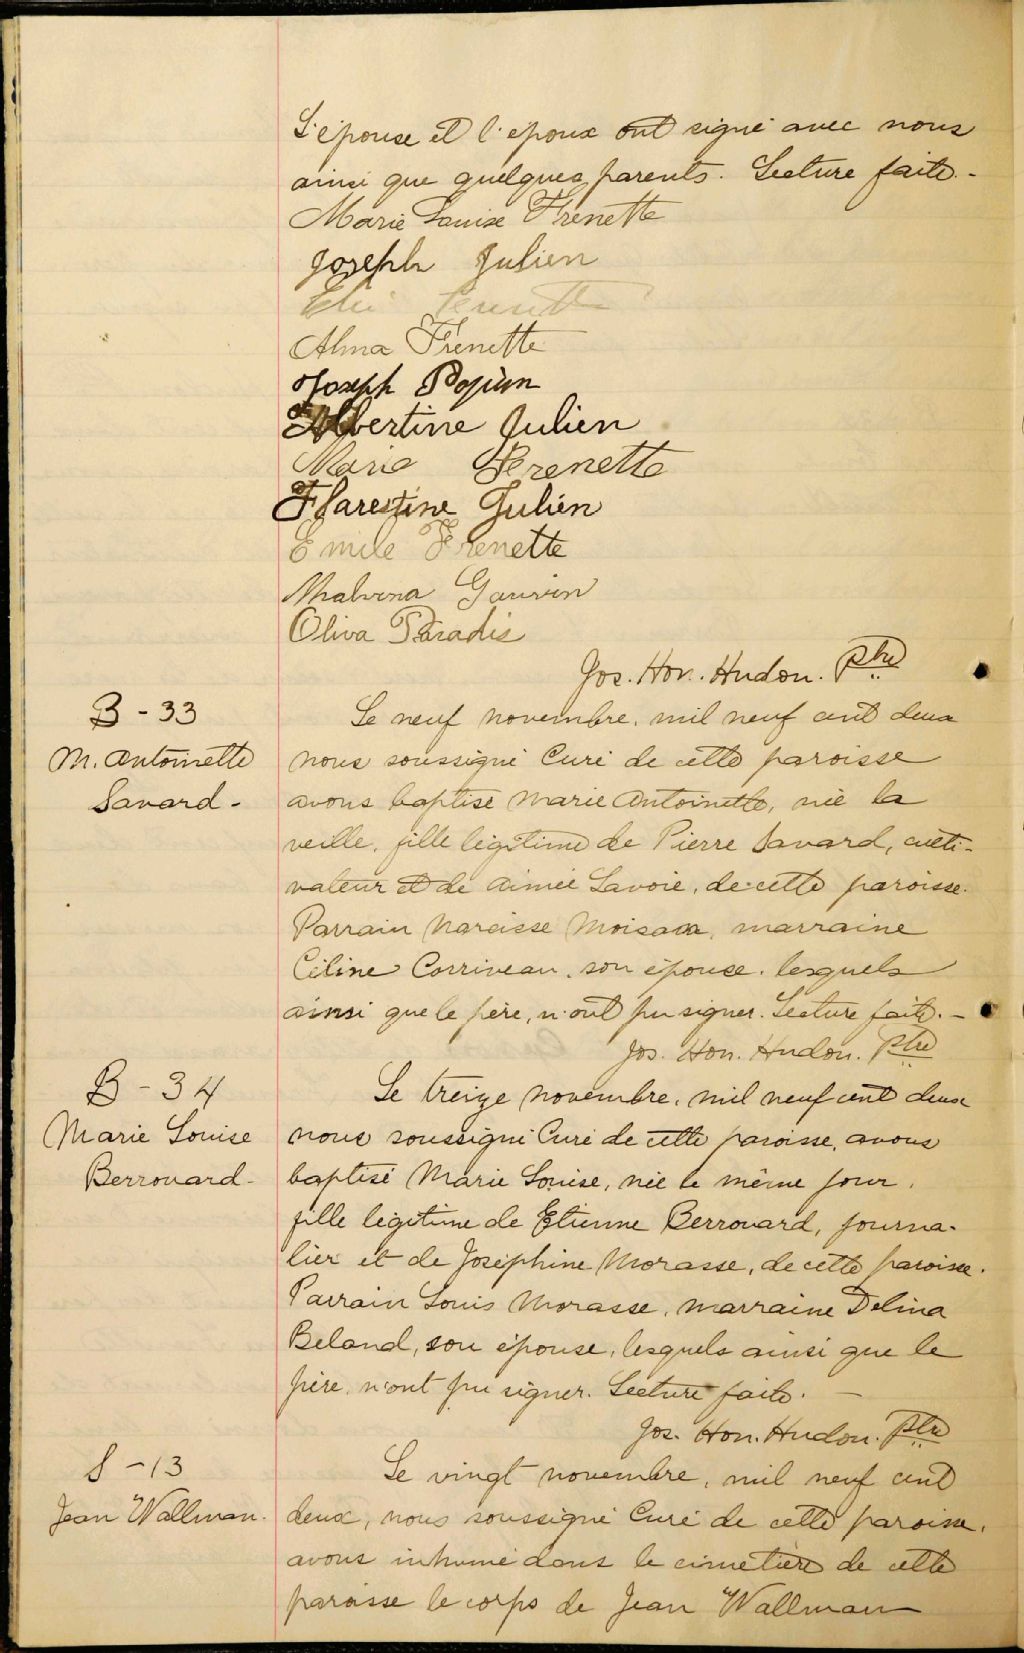 L'épouse et l'époux ont signé avec nous
ainsi que quelques parents. Lecture faite.-
Marie Louise Frenette
Joseph Julien
Alma Frenette
Joseph Papion
Albertine Julien
Marie Frenette
Florestine Julien
Emile Frenette
Malvina Gauvin
Oliva Paradis
Jos. Hon. Hudon. Ptre
B - 33
M. Antoinette
Savard -
Le neuf novembre, mil neuf cent deux
nous soussigné Curé de cette paroisse
avons baptisé Marie Antoinette, née la
veille, fille légitime de Pierre Savard, culti-
vateur et de Aimée Savoie, de cette paroisse.
Parrain Narcisse Moisan, marraine
Céline Corriveau, son épouse, lesquels
ainsi que le père, n'ont pu signer. Lecture faite. -
Jos. Hon. Hudon. Ptre
B - 34
Marie Louise
Berrouard -
Le treize novembre, mil neuf cent deux
nous soussigné Curé de cette paroisse, avons
baptisé Marie Louise, née le même jour,
fille légitime de Etienne Berrouard, journa-
lier et de Joséphine Morasse, de cette paroisse.
Parrain Louis Morasse, marraine Delina
Beland, son épouse, lesquels ainsi que le
père, n'ont pu signer. Lecture faite. -
Jos. Hon. Hudon. Ptre
S - 13
Jean Wallman.
Le vingt novembre, mil neuf cent
deux, nous soussigné Curé de cette paroisse,
avons inhumé dans le cimetière de cette
paroisse le corps de Jean Wallman